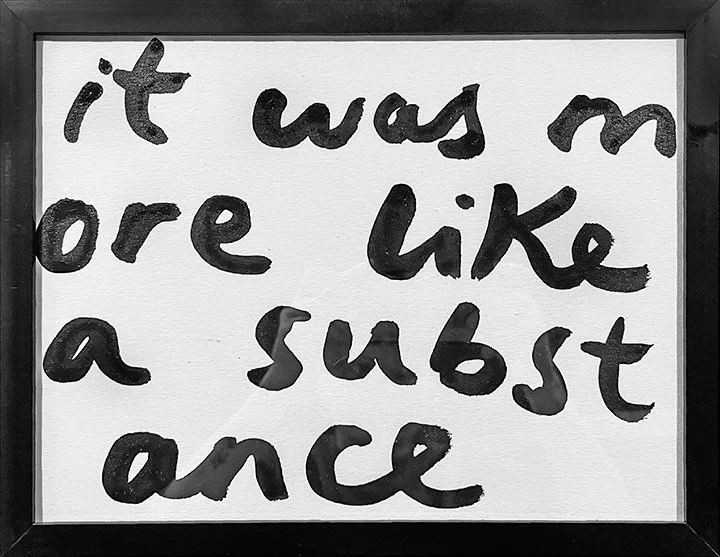 it was m
ore like
a subst
ance